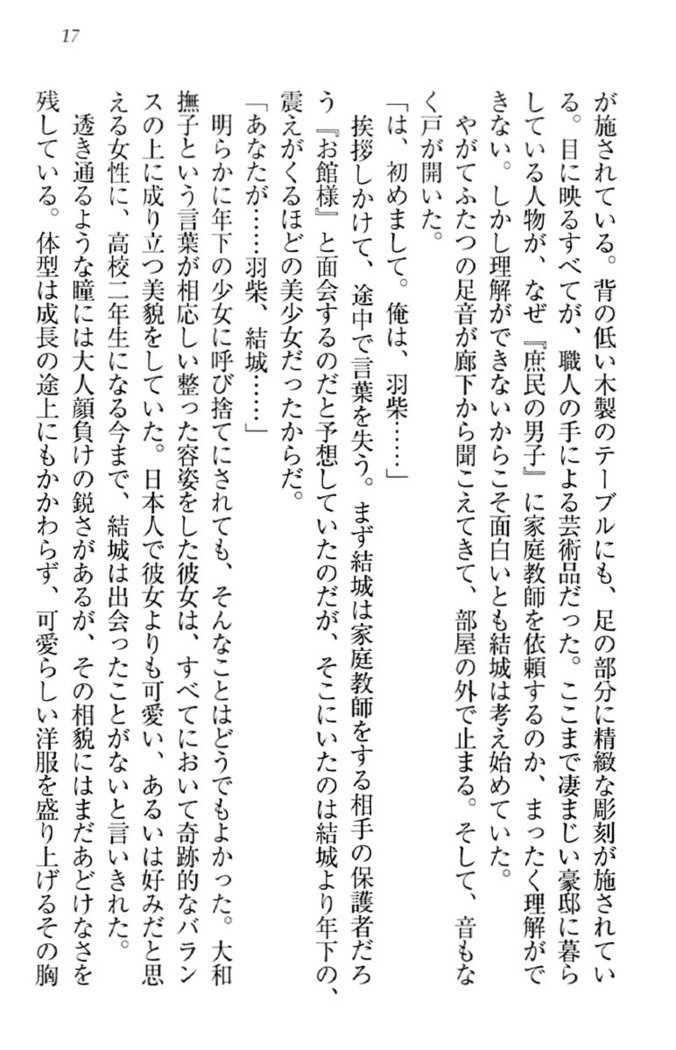 17
が施されている。背の低い木製のテーブルにも、足の部分に精緻な彫刻が施されてい
る。目に映るすべてが、職人の手による芸術品だった。ここまで凄まじい豪邸に暮ら
している人物が、なぜ『庶民の男子』に家庭教師を依頼するのか、まったく理解がで
きない。しかし理解ができないからこそ面白いとも結城は考え始めていた。
やがてふたつの足音が廊下から聞こえてきて、部屋の外で止まる。そして、音もな
く戸が開いた。
「は、初めまして。俺は、羽柴……」
挨拶しかけて、途中で言葉を失う。まず結城は家庭教師をする相手の保護者だろ
う『お館様』と面会するのだと予想していたのだが、そこにいたのは結城より年下の、
震えがくるほどの美少女だったからだ。
「あなたが……羽柴、結城……」
明らかに年下の少女に呼び捨てにされても、そんなことはどうでもよかった。大和
撫子という言葉が相応しい整った容姿をした彼女は、すべてにおいて奇跡的なバラン
スの上に成り立つ美貌をしていた。日本人で彼女よりも可愛い、あるいは好みだと思
える女性に、高校二年生になる今まで、結城は出会ったことがないと言いきれた。
透き通るような瞳には大人顔負けの鋭さがあるが、その相貌にはまだあどけなさを
残している。体型は成長の途上にもかかわらず、可愛らしい洋服を盛り上げるその胸